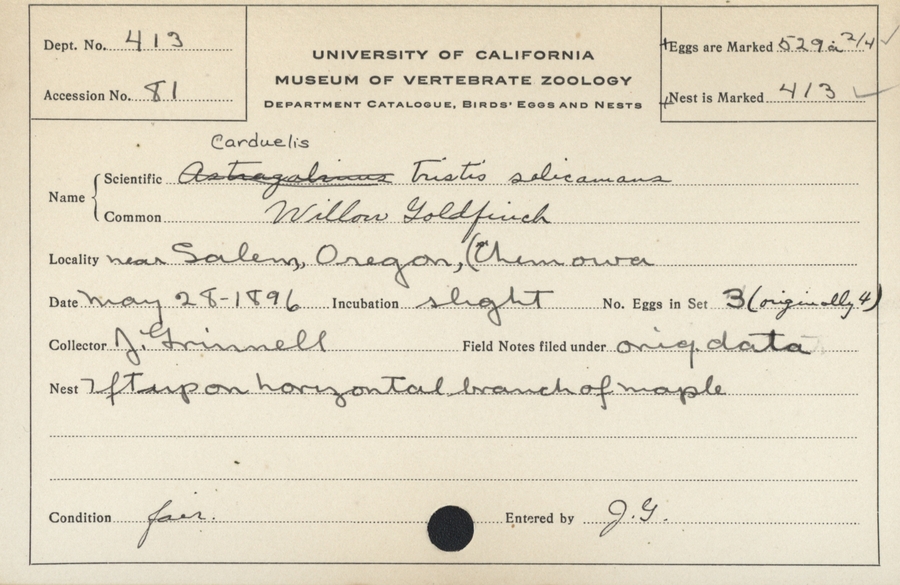 Dept. No. 413
Accession No. 81
UNIVERSITY OF CALIFORNIA
MUSEUM OF VERTEBRATE ZOOLOGY
DEPARTMENT CATALOGUE, BIRDS' EGGS AND NESTS
Eggs are Marked 529a 2/4 ✓
Nest is Marked 413 ✓
Carduelis
Name { Scientific Astragalinus tristis salicamans
Common Willow Goldfinch
Locality near Salem, Oregon, (Chemowa
Date May 28-1896 Incubation slight No. Eggs in Set 3 (originally 4)
Collector J. Grinnell Field Notes filed under orig. data
Nest 7 ft up on horizontal branch of maple
Condition fair. Entered by J.G.